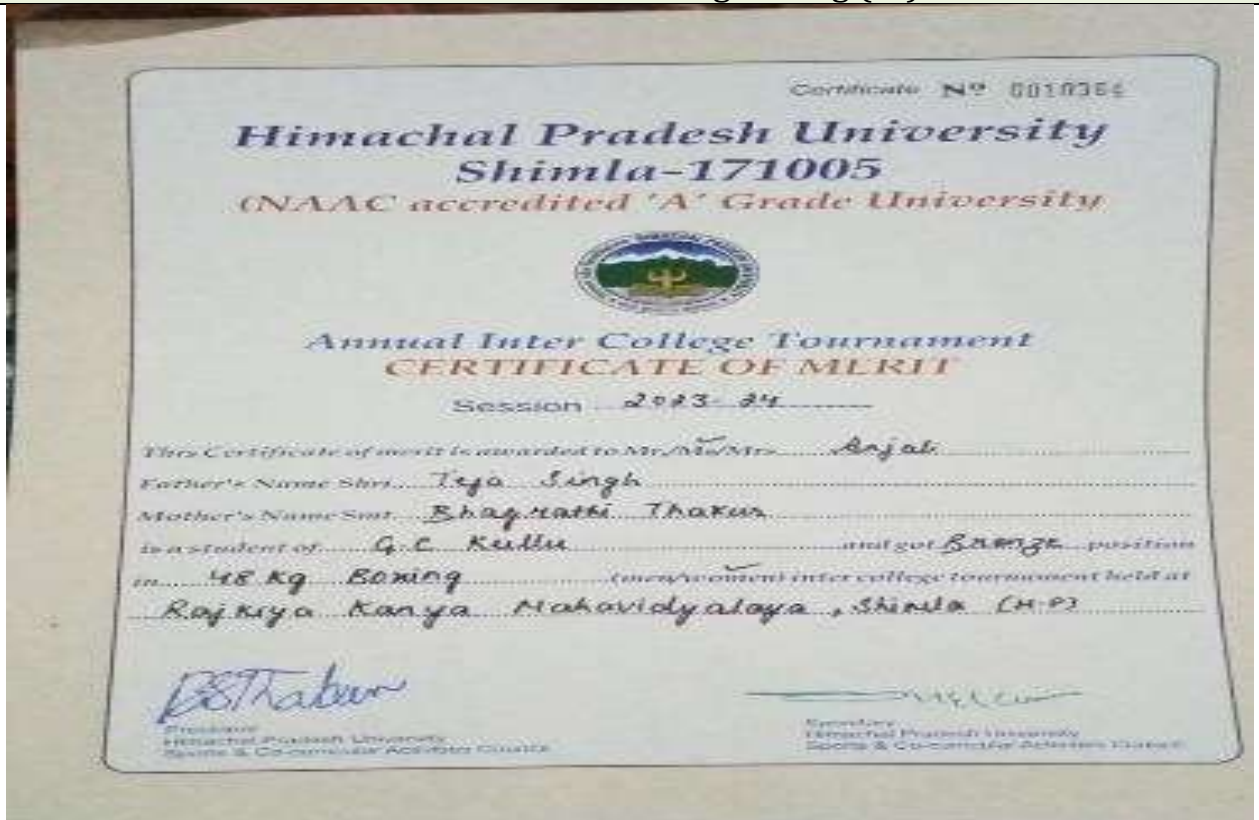 Certificate Nº 0010364
Himachal Pradesh University
Shimla-171005
(NAAC accredited 'A' Grade University
Annual Inter College Tournament
CERTIFICATE OF MERIT
Session 2023-24
This Certificate of merit is awarded to Mr./Ms/Mrs. Anjali
Father's Name Shri. Teja Singh
Mother's Name Smt. Bhagrathi Thakur
is a student of G.C Kullu and got Bronze position
in 48 Kg Boxing (men/women) inter college tournament held at
Rajkiya Kanya Mahavidyalaya, Shimla (H.P)
President
Himachal Pradesh University
Sports & Co-curricular Activities Council
Secretary
Himachal Pradesh University
Sports & Co-curricular Activities Council